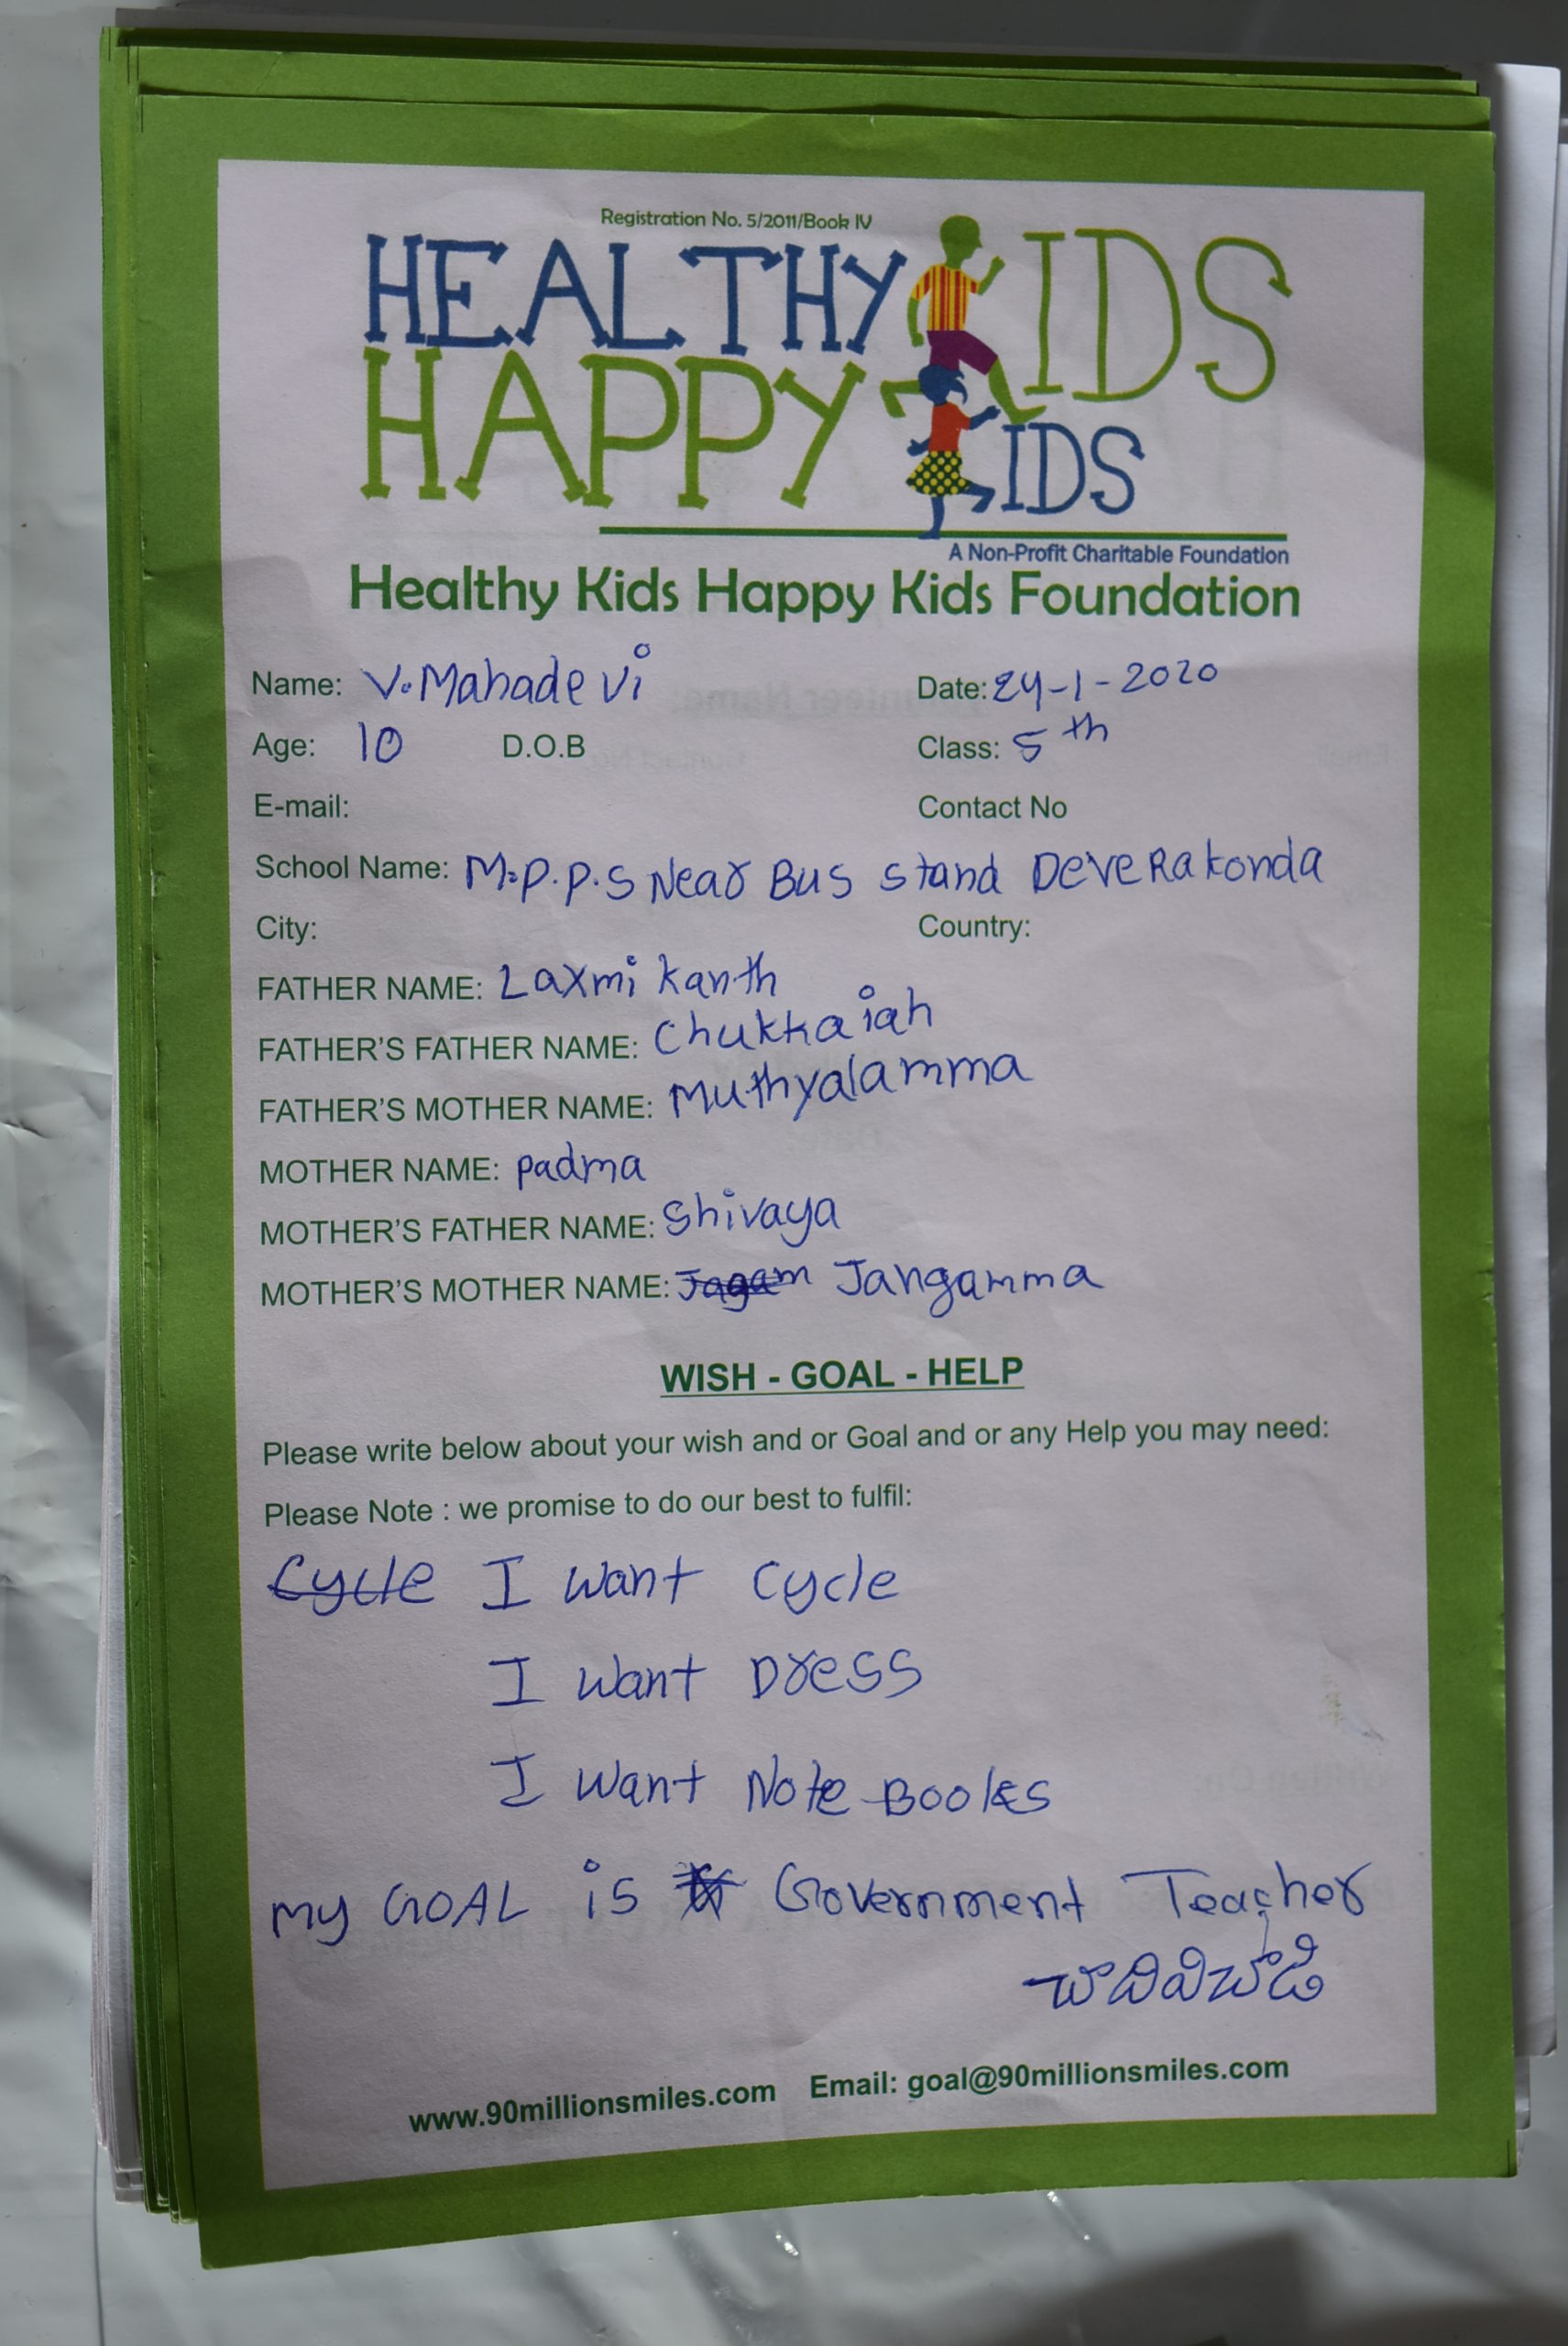 Registration No. 5/2011/Book IV
HEALTHY KIDS
HAPPY KIDS
A Non-Profit Charitable Foundation
Healthy Kids Happy Kids Foundation
Name: V. Mahadevi Date: 24-1-2020
Age: 10 D.O.B Class: 5th
E-mail: Contact No
School Name: M.P.P.S Near Bus stand DeveRakonda
City: Country:
FATHER NAME: Laxmi kanth
FATHER'S FATHER NAME: Chukkaiah
FATHER'S MOTHER NAME: Muthyalamma
MOTHER NAME: padma
MOTHER'S FATHER NAME: Shivaya
MOTHER'S MOTHER NAME: Jagam Jangamma
WISH - GOAL - HELP
Please write below about your wish and or Goal and or any Help you may need:
Please Note : we promise to do our best to fulfil:
Cycle I want cycle
I want Dress
I want Note Books
my GOAL is Government Teacher
www.90millionsmiles.com Email: goal@90millionsmiles.com